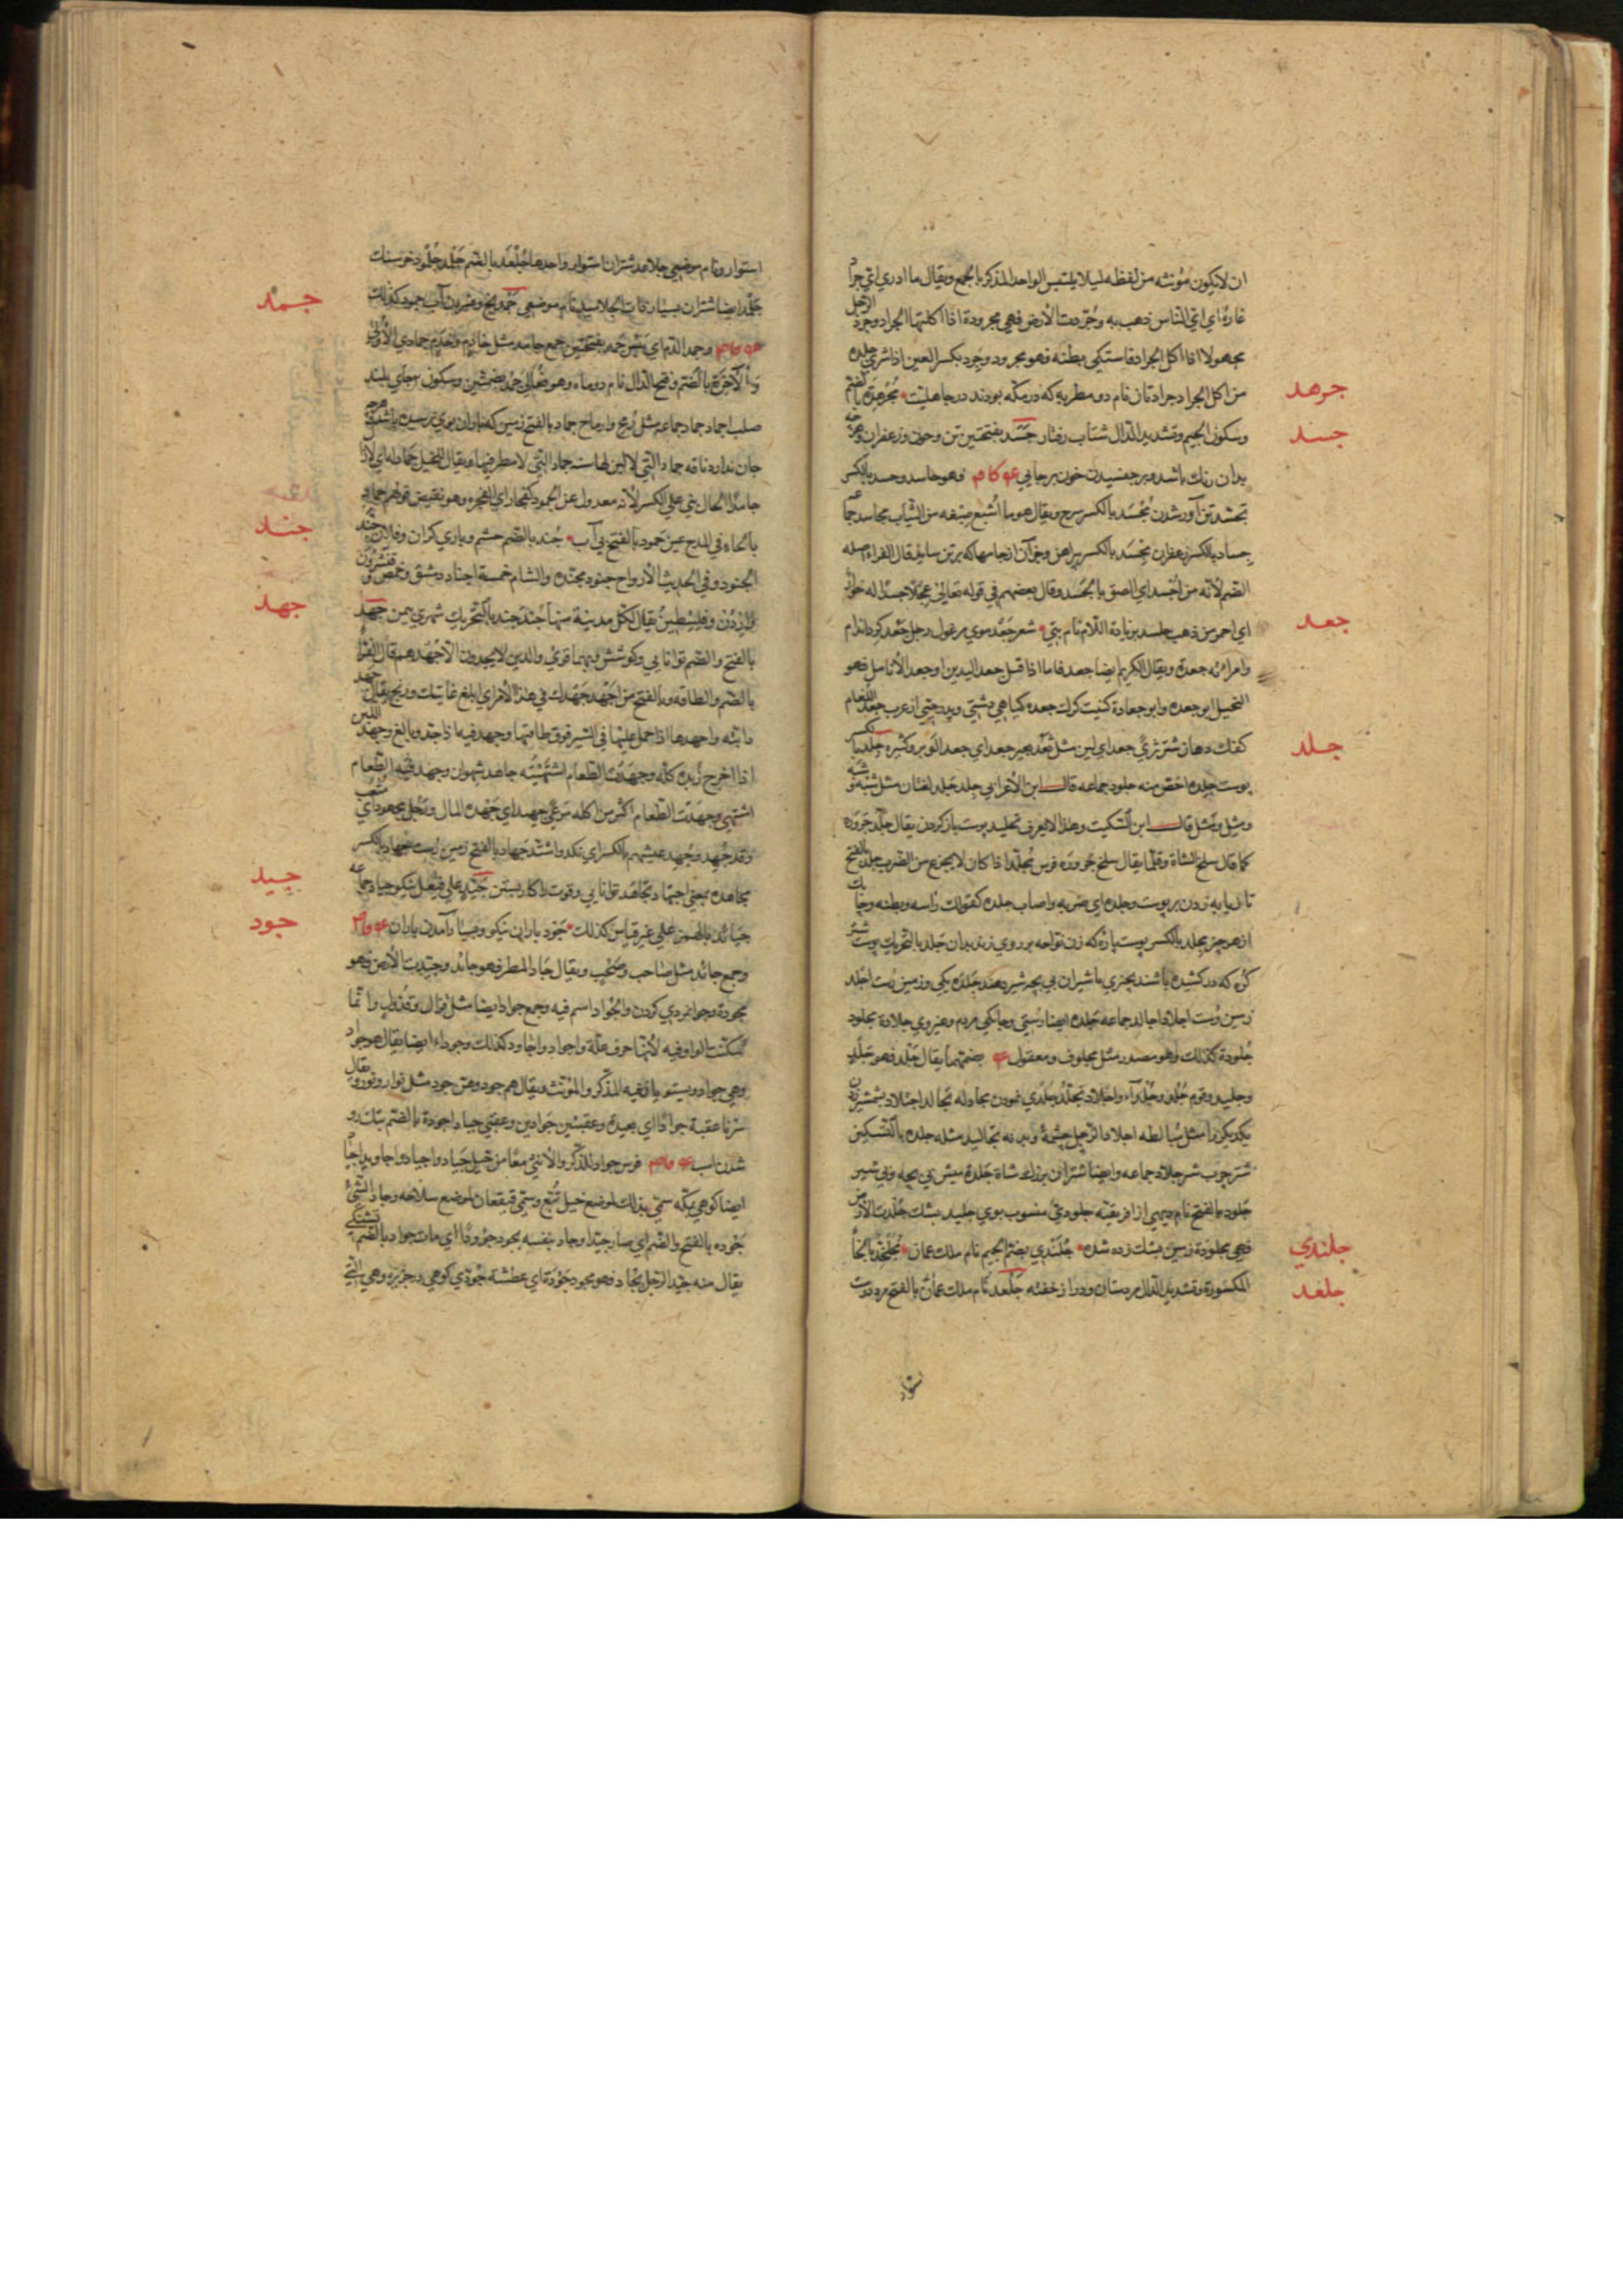 ان لایکون مؤنثه من لفظه لیلا یلتبس الواحد المذکر بالجمع ویقال ما ادری ای جراد
غاره ای ای الناس ذهب به وجردت الارض فهی مجرودة اذا اکلتها الجراد وجرد الرجل
مجهولا اذا اکل الجراد فاستکی بطنه فهو مجرود وجرد بکسر العین اذا شری جلده
جرهد
من اکل الجراد جرادتان نام دو مطربه که در مکه بودند در جاهلیت مجرهد بالضم
جسد
وسکون الجیم وتشدید الدال شتاب رفتار جسد بفتحتین تن وخون وزعفران
بدان رنک باشد وبرجفسیدن خون برجایی فهو جاسد وجسد بالکسر
تجسد تن آور شدن مجسد بالکسر سرخ ویقال هو ما اشبع صبغه من الثیاب مجاسد
جساد بالکسر زعفران مجسد بالکسر پیراهن وجز آن از جامها که بر تن ساید قال الفراء اصله
الضم لانه من اجسد ای الصق بالجسد وقال بعضهم فی قوله تعالی عجلا جسدا له خوار
جعد
ای احمر من ذهب جلسد بزیادة اللام نام بتی شعر جعد موی مرغول رجل جعد کرد اندام
وامراة جعدة ویقال للکریم ایضا جعد فاما اذا قیل جعد الیدین او جعد الانامل فهو
البخیل ابو جعده وابو جعادة کنیت کرک جعده کیاهی دشتی وپدر حیی از عرب جعد اللغام
جلد
کفک دهان شتر ثری جعد ای لین مثل ثعد بعیر جعد ای جعد الوبر وکثیره جلد بالکسر
پوست جلده اخص منه جلود جماعه قال ابن الاعرابی جلد جلد لغتان مثل شبه وشبه
ومثل ومثل قال ابن السکیت وهذا لا یعرف تجلید پوست باز کردن یقال جلد جزوره
کما قال سلخ الشاة وقلما یقال سلخ جزوره فرس مجلد اذا کان لا یجزع من الضرب جلد بالفتح
تازیانه زدن بر پوست وجلده ای ضربه واصاب جلده کقولک راسه وبطنه
از هر چیز مجلد بالکسر پوست پاره که زن نواحه بر روی زند بدان جلد بالتحریک پوست شتر
کره که در کشیده باشند بچیزی با شیران بی بچه شیر دهند جلده یکی وزمین درشت اجلد
زمین درشت اجلاد اجالد جماعه جلده ایضا رستی وچابکی مردم وغیر وی جلادة مجلود
جلودة کذلک وهو مصدر مثل محلوف ومعقول بضمتهما یقال جلد فهو جلد
وجلید وقوم جلد وجلداء واجلاد تجلد جلدی نمودن مجادله تجالد اجتلاد بشمشیر زدن
یکدیکر را مثل مبالطه اجلاد الرجل جثمه وبدنه تجالید مثله جلده بالتسکین
شتر چرب شیر جلاد جماعه وایضا شتران بزرک شاة جلدة میش بی بچه وبی شیر
جلود بالفتح نام دیهی از افریقیه جلودی منسوب بوی جلید بشک جلدت الارض
جلندی
فهی مجلودة زمین بشک زده شده جلندی بضم الجیم نام ملک عمان مجلخد بالخاء
جلعد
المکسورة وتشدید الدال مرد ستان ودراز خفته جلعد نام ملک عمان بالفتح مرد درشت
استوار ونام موضعی جلاعد شتران استوار واحدها جلعد بالضم جلمد جلمود خر سنک
جمد
جلمد ایضا شتران بسیار ذات الجلامید نام موضعی جمد یخ وفسردن آب جمود کذلک
وجمد الدم ای یبس جمد بفتحتین جمع جامد مثل خادم وخدم جمادی الاولی
والاخرة بالضم وفتح الدال نام دو ماه وهو فعالی جمد بضمتین وسکون جای بلند
صلب اجماد جماد جماعه مثل رمح وارماح جماد بالفتح زمین که باران بوی نرسیده باشد
جان ندارد ناقه جماد التی لا لبن لها سنه جماد التی لا مطر فیها ویقال للبخیل جماد له ای لا زال
جامد الحال بنی علی الکسر لانه معدول عن الجمود کفجار ای الفجره وهو نقیض قولهم حماد
جند
بالحاء فی المدح عین جمود بالفتح بی آب جند بالضم حشم ویاری کران
الجنود وفی الحدیث الارواح جنود مجنده والشام خمسة اجناد دمشق وحمص وقنسرون
جهد
والاردن وفلسطین یقال لکل مدینة منها جند جند بالتحریک شهری بیمن جهد
بالفتح والضم توانایی وکوشش وبهما قرئ والذین لا یجدون الا جهدهم قال الفراء
بالضم والطاقه وبالفتح من اجهد جهدک فی هذا الامر ای ابلغ غایتک ورنج یقال جهد
دابته واجهدها اذا حمل علیها فی السیر فوق طاقتها وجهد فیه اذا جد وبالغ وجهد اللبن
اذا اخرج زبده کله وجهدت الطعام اشتهیته جاهد شهوان وجهد فیه الطعام
اشتهی وجهدت الطعام اکثر من اکله مرعی جهید ای جهده المال ورجل مجهود ای
وقد جهد وجهد عیشهم بالکسر ای نکد واشتد جهاد بالفتح زمین درشت جهاد بالکسر
جید
مجاهده بمعنی اجتهاد تجاهد توانایی وقوت را کار بستن جید علی فیعل نیکو جیاد جماعه
جود
جیائد بالهمز علی غیر قیاس کذلک جود باران نیکو وبسیار آمدن باران
وجمع جائد مثل صاحب وصحب ویقال جاد المطر فهو جائد وجیدت الارض فهو
مجودة وجوانمردی کردن والجواد اسم فیه وجمع جواد ایضا مثل قزال وقذل وانما
سکنت الواو فیه لانها حرف علة واجواد واجاود کذلک وجوداء ایضا یقال هو جواد
وهی جواد ویستوی فیه المذکر والمؤنث ویقال هم جود وهن جود مثل نوار ونور ویقال
سرنا عقبة جوادا ای بعیدة وعقبتین جوادین وعقبی جیاد اجودة بالضم نیک رو
شدن اسب فرس جواد للذکر والانثی معا من خیل جیاد واجیاد واجاوید اجیاد
ایضا کوهی بمکه سمی بذلک لموضع خیل تبع وسمی قعیقعان لموضع سلاحه وجاد الشیء
جوده بالفتح والضم ای صار جیدا وجاد بنفسه یجود جؤودا ای مات جواد بالضم تشنکی
یقال منه جید الرجل یجاد فهو مجود جودة ای عطشة جودی کوهی بجزیره وهی التی